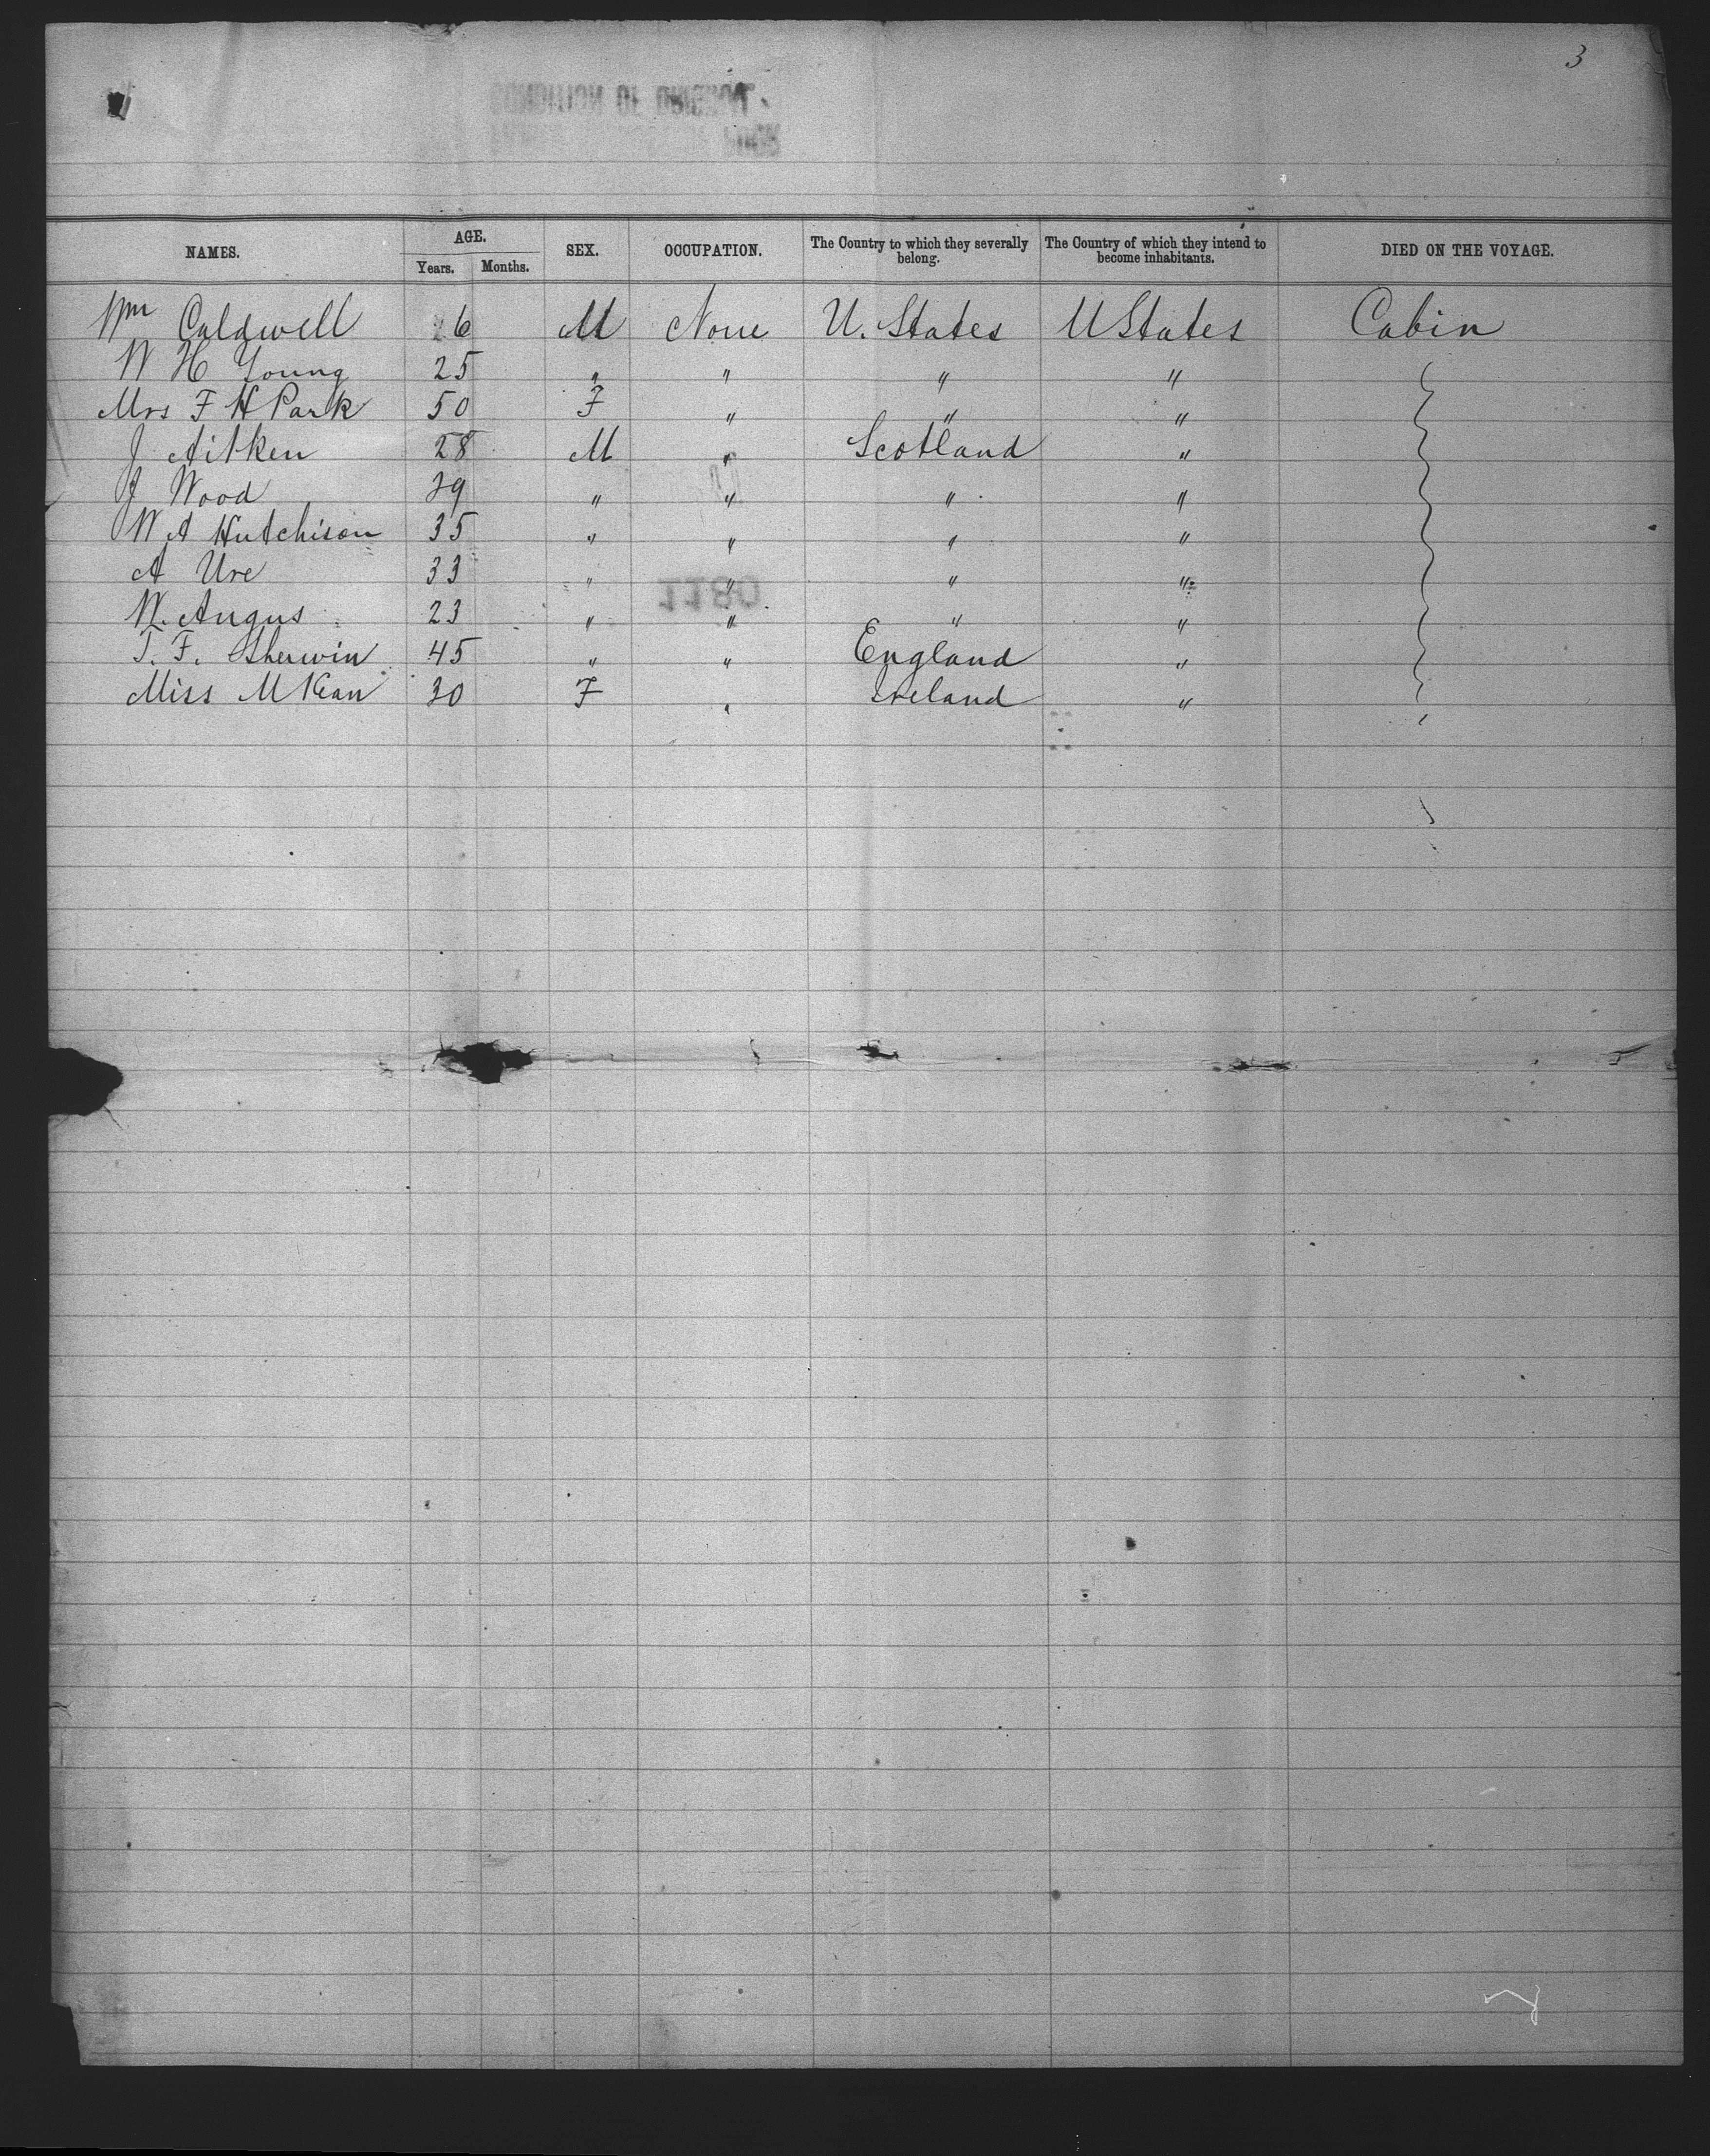 3
NAMES. AGE. SEX. OCCUPATION. The Country to which they severally belong. The Country of which they intend to become inhabitants. DIED ON THE VOYAGE.
Years. Months.
Wm Caldwell 6 M None U. States U States Cabin
W H Young 25 " " " "
Mrs F H Park 50 F " " "
J Aitken 28 M " Scotland "
J Wood 39 " " " "
W A Hutchison 35 " " " "
A Ure 33 " " " "
W. Angus 23 " " " "
T. F. Sherwin 45 " " England "
Miss M Kean 30 F " Ireland "
1180